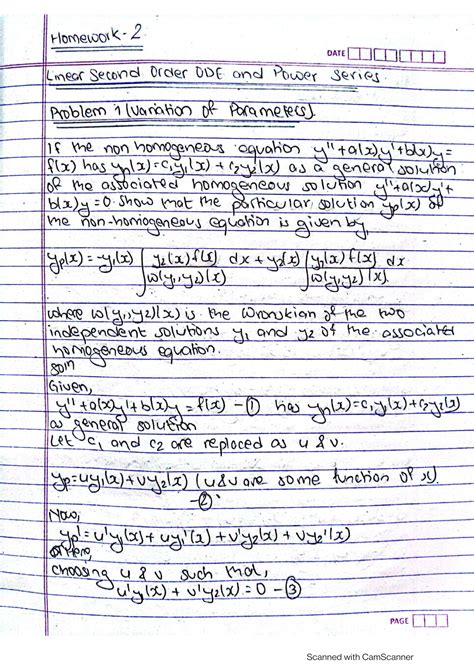 Homework-2
DATE
Linear Second Order ODE and Power Series
Problem 1 (Variation of Parameters)
If the non homogeneous equation y''+a(x)y'+b(x)y=
f(x) has yn(x)=c1y1(x)+c2y2(x) as a general solution
of the associated homogeneous solution y''+a(x)y'+
b(x)y=0. Show that the particular solution yp(x) of
the non-homogeneous equation is given by,
yp(x)=-y1(x)∫ y2(x)f(x)/w(y1,y2)(x) dx + y2(x)∫ y1(x)f(x)/w(y1,y2)(x) dx
where w(y1,y2)(x) is the Wronskian of the two
independent solutions y1 and y2 of the associated
homogeneous equation.
soln
Given,
y''+a(x)y'+b(x)y=f(x) - ① has yn(x)=c1y1(x)+c2y2(x)
as general solution
Let c1 and c2 are replaced as u & v.
yp=uy1(x)+vy2(x) (u & v are some function of x)
-②
Now,
yp'=u'y1(x)+uy1'(x)+v'y2(x)+vy2'(x)
Here,
choosing u & v such that,
u'y1(x)+v'y2(x)=0 -③
PAGE
Scanned with CamScanner